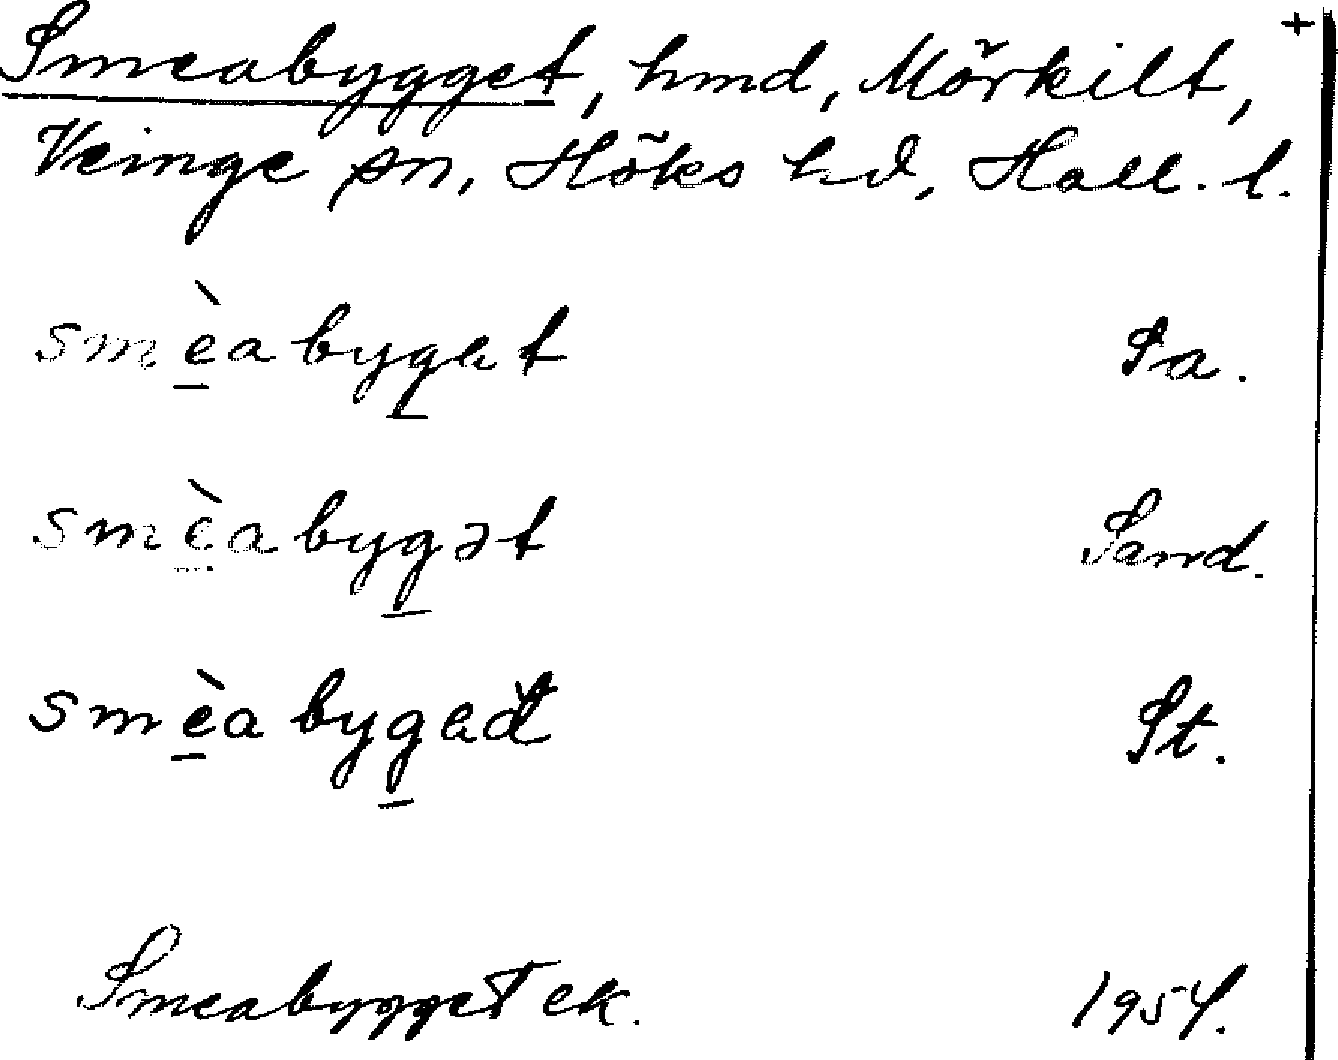 +
Smeabygget, hmd, Mörkilt,
Veinge sn, Höks hd, Hall. l.
smèabygat Sa.
smèabygət Sand.
smèabygad St.
Smeabygget ek. 1954.